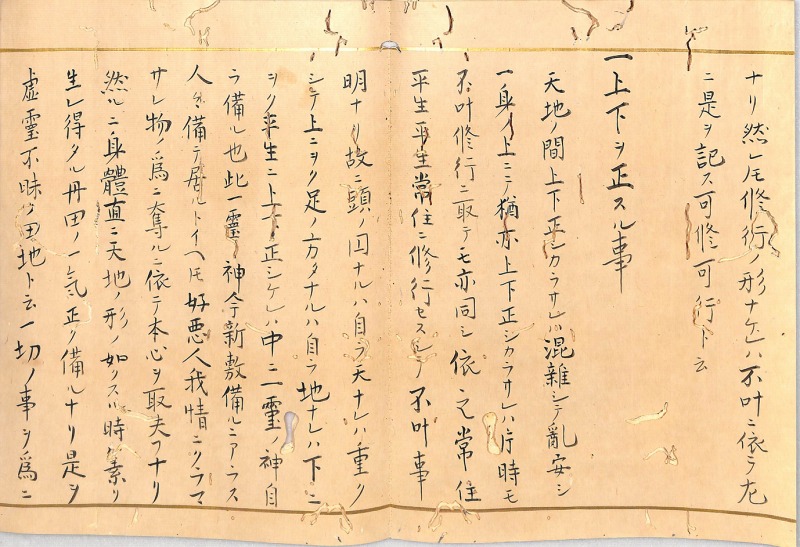 ナリ然レ𪜈修行ノ形ナケレハ不叶ニ依テ左
ニ是ヲ記ス可修可行ト云
一上下ヲ正スル事
天地ノ間上下正シカラサレハ混雑シテ亂安シ
一身ノ上ニテ猶亦上下正シカラサレハ片時モ
不叶修行ニ取テモ亦同シ依之常住
平生平生常住ニ修行セスシテ不叶事
明ナリ故ニ頭ノ円ナルハ自ラ天ナレハ重ク
シテ上ニヲク足ノ方タナルハ自ラ地ナレハ下ニ
ヲク平生ニ上下正シケレハ中ニ一靈ノ神自
ラ備ル也此一靈ノ神今新敷備ルニアラス
人々備テ居ルトイヘ𪜈好悪人我情ニクラマ
サレ物ノ爲ニ奪ルニ依テ本心ヲ取失フナリ
然ルニ身體直ニ天地ノ形ノ如リスル時ハ素リ
生レ得タル丹田ノ一氣正ク備ルナリ是ヲ
虚靈不昧ノ田地ト云一切ノ事ヲ爲ニ